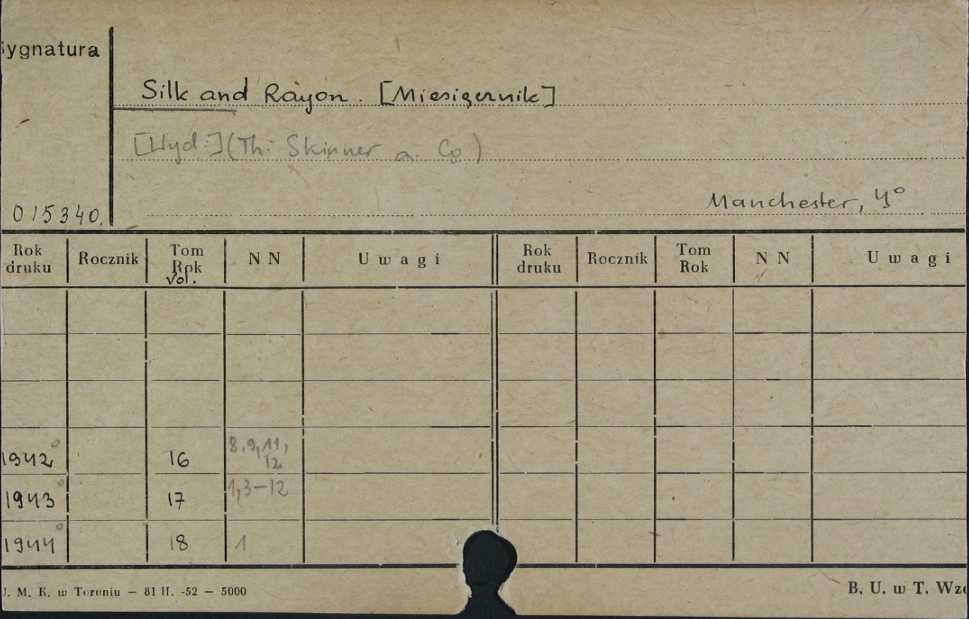 Sygnatura
Silk and Rayon. [Miesięcznik]
[Wyd:] (Th. Skinner a. Co)
015340.
Manchester, 4°
Rok druku Rocznik Tom Rok vol. NN Uwagi Rok druku Rocznik Tom Rok NN Uwagi
1942° 16 8, 9, 11, 12
1943° 17 1, 3-12
1944° 18 1
U. M. K. w Toruniu — 81 II. -52 — 5000
B. U. w T. Wzó